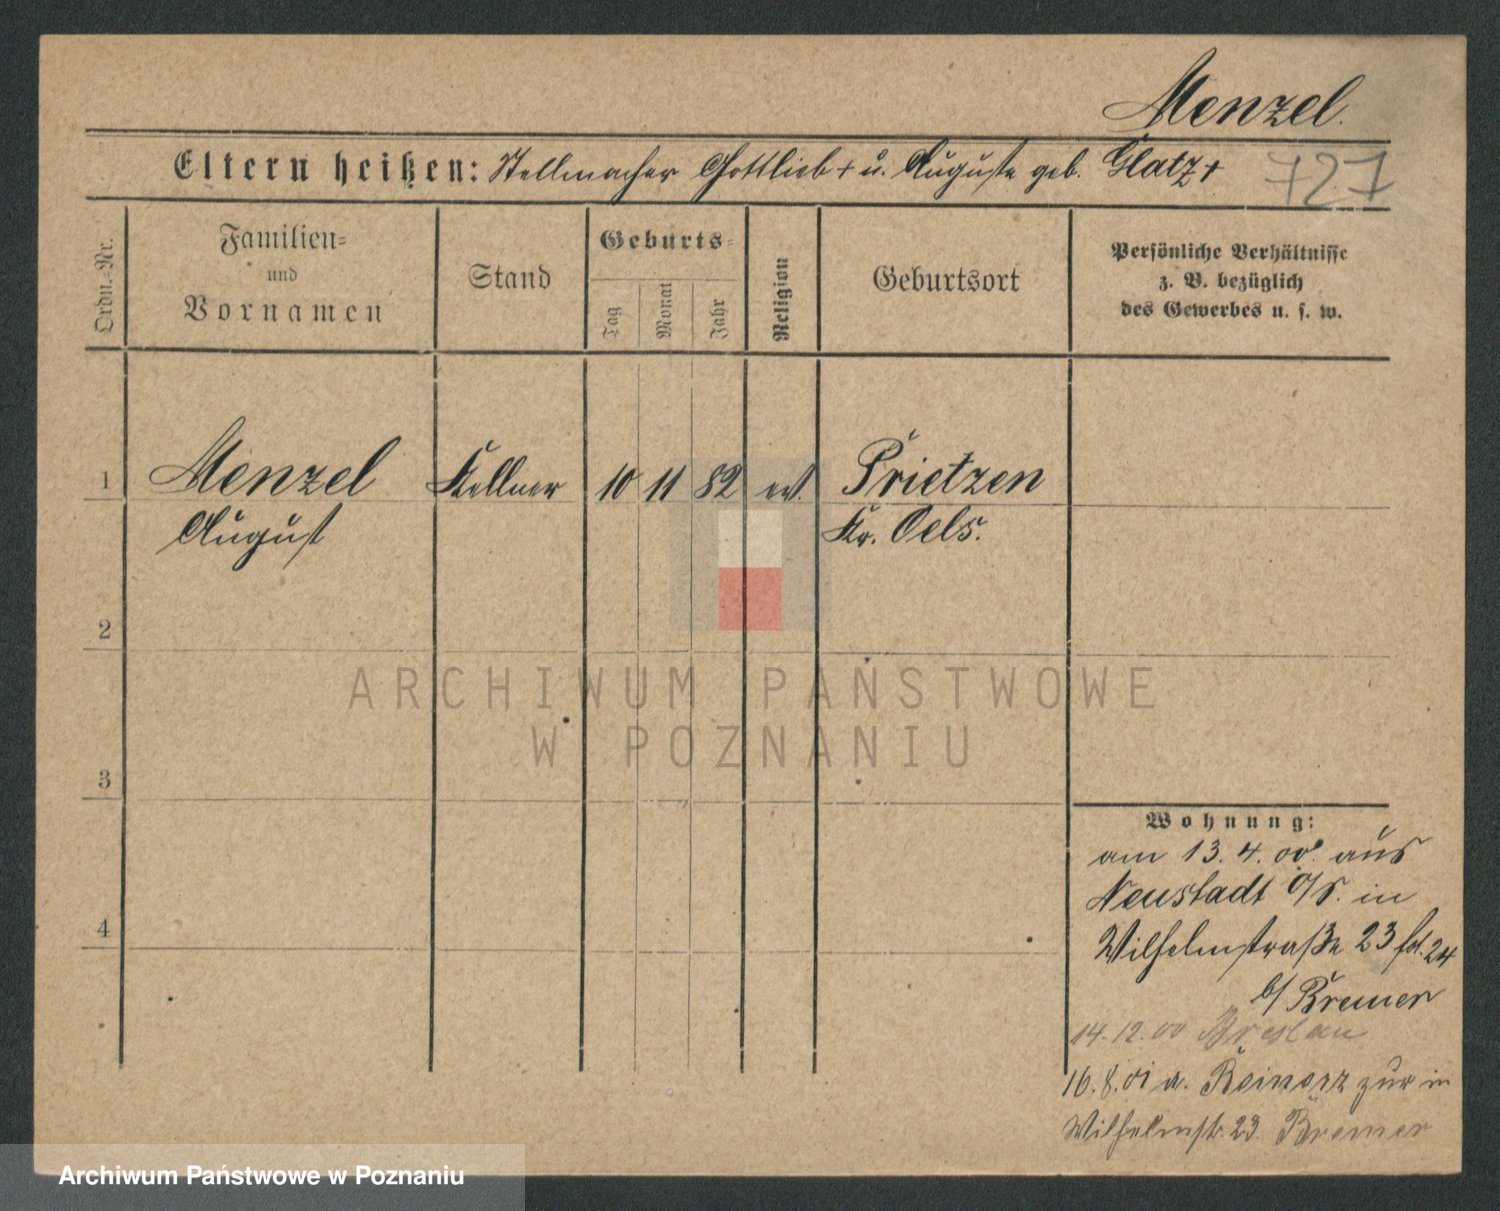 Menzel.
Eltern heißen: Stellmacher Gottlieb + u. Auguste geb. Glatz +
727
Ordn.-Nr.
Familien-
und
Vornamen
Stand
Geburts-
Tag
Monat
Jahr
Religion
Geburtsort
Persönliche Verhältnisse
z. B. bezüglich
des Gewerbes u. s. w.
1
Menzel
August
Kellner
10
11
82
ev.
Prietzen
Kr. Oels.
2
3
4
Wohnung:
am 13.4.00. aus
Neustadt O/S. in
Wilhelmstraße 23 24
b/ Bremer
14.12.00 Breslau
16.8.01 a. Reinerz zur in
Wilhelmstr. 23. Bremer
ARCHIWUM PAŃSTWOWE
W POZNANIU
Archiwum Państwowe w Poznaniu